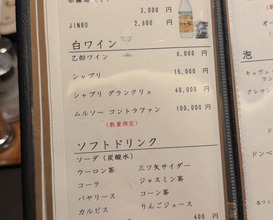 3,000 円
JINRO 2,600 円
白ワイン
乙部ワイン 6,000 円
シャブリ 15,000 円
シャブリ グランクリュ 40,000 円
ムルソー コントラファン 100,000円
(数量限定)
ソフトドリンク
ソーダ (炭酸水)
三ツ矢サイダー
ウーロン茶
ジャスミン茶
コーラ
コーン茶
バヤリース
りんごジュース
カルピス
400 円
泡